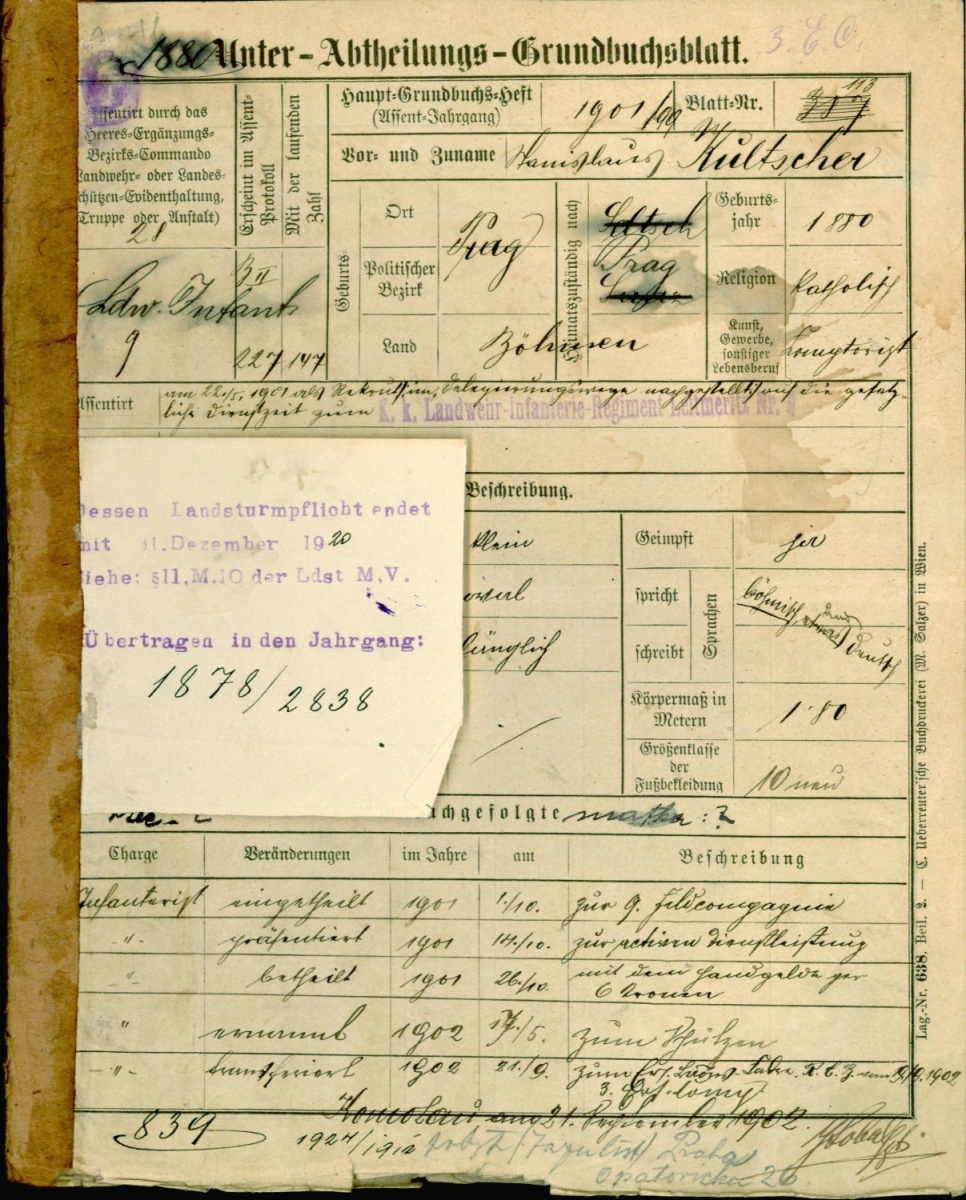 1880 Unter-Abtheilungs-Grundbuchsblatt.
3. E. O.
Assentirt durch das
Heeres-Ergänzungs-
Bezirks-Commando
Landwehr- oder Landes-
schützen-Evidenthaltung,
Truppe oder Anstalt)
28
Ldw. Infant
9
Erscheint im Assent-
Protokoll
Mit der laufenden
Zahl
B II
227/147
Haupt-Grundbuchs-Heft
(Assent-Jahrgang)
1901/99
Blatt-Nr.
113
317
Vor- und Zuname Stanislaus Kultscher
Geburts-
Ort
Prag
Politischer
Bezirk
Land
Böhmen
Heimatszuständig nach
Prag
Geburts-
jahr
1880
Religion
Katholisch
Kunst,
Gewerbe,
sonstiger
Lebensberuf
Comptorist
Assentirt
am 22./5. 1901 als Rekrut im Delegierungswege nachgestellt auf die gesetz-
liche Dienstzeit zum K. k. Landwehr-Infanterie-Regiment Leitmeritz Nr. 9
Dessen Landsturmpflicht endet
mit 31.Dezember 1920
Siehe: §11,M.10 der Ldst M.V.
Übertragen in den Jahrgang:
1878/2838
Beschreibung.
klein
oval
länglich
Geimpft
ja
spricht
schreibt
Sprachen
böhmisch, etwas deutsch
und
Körpermaß in
Metern
1·80
Größenklasse
der
Fußbekleidung
10 neu
achgefolgte
Charge Veränderungen im Jahre am Beschreibung
Infanterist eingetheilt 1901 1./10. zur 9. Feldcompagnie
-"- präsentiert 1901 14./10. zur activen Dienstleistung
-"- betheilt 1901 26./10. mit dem Handgelde per
6 Kronen
" ernannt 1902 17./5. zum Schützen
-"- transferiert 1902 21./9. zum Ers. Cadre. R. C. B. vom 19/9. 1902
3. Ers. Comp
Komotau, am 21. September 1902.
839
1924/1912
Praha
Opatovická 26.
Lag.-Nr. 638. Beil. 2. — C. Ueberreuter'sche Buchdruckerei (M. Salzer) in Wien.